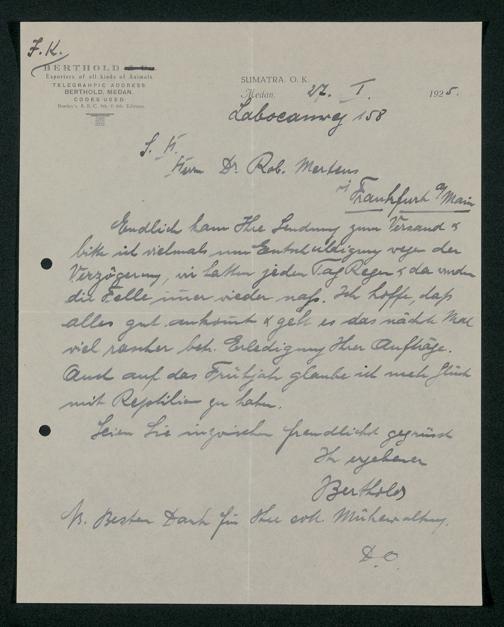 F. K.
BERTHOLD
Exporters of all kinds of Animals.
TELEGRAHPIC ADDRESS
BERTHOLD, MEDAN.
CODES USED:
Bentley's, A. B. C. 5th & 6th Edition.
SUMATRA O. K.
Medan, 27. I. 1925.
Labocanweg 158
S. H.
Herrn Dr. Rob. Mertens
Frankfurt a/Main
Endlich kam Ihre Sendung zum Versand &
bitte ich vielmals um Entschuldigung wegen der
Verzögerung, wir hatten jeden Tag Regen & da wurden
die Felle immer wieder naß. Ich hoffe, daß
alles gut ankommt & geht es das nächste Mal
viel rascher betr. Erledigung Ihrer Aufträge.
Auch auf das Frühjahr glaube ich mehr Glück
mit Reptilien zu haben.
Seien Sie inzwischen freundlichst gegrüsst
Ihr ergebener
Berthold
N. Besten Dank für Ihre Mühewaltung.
D. O.